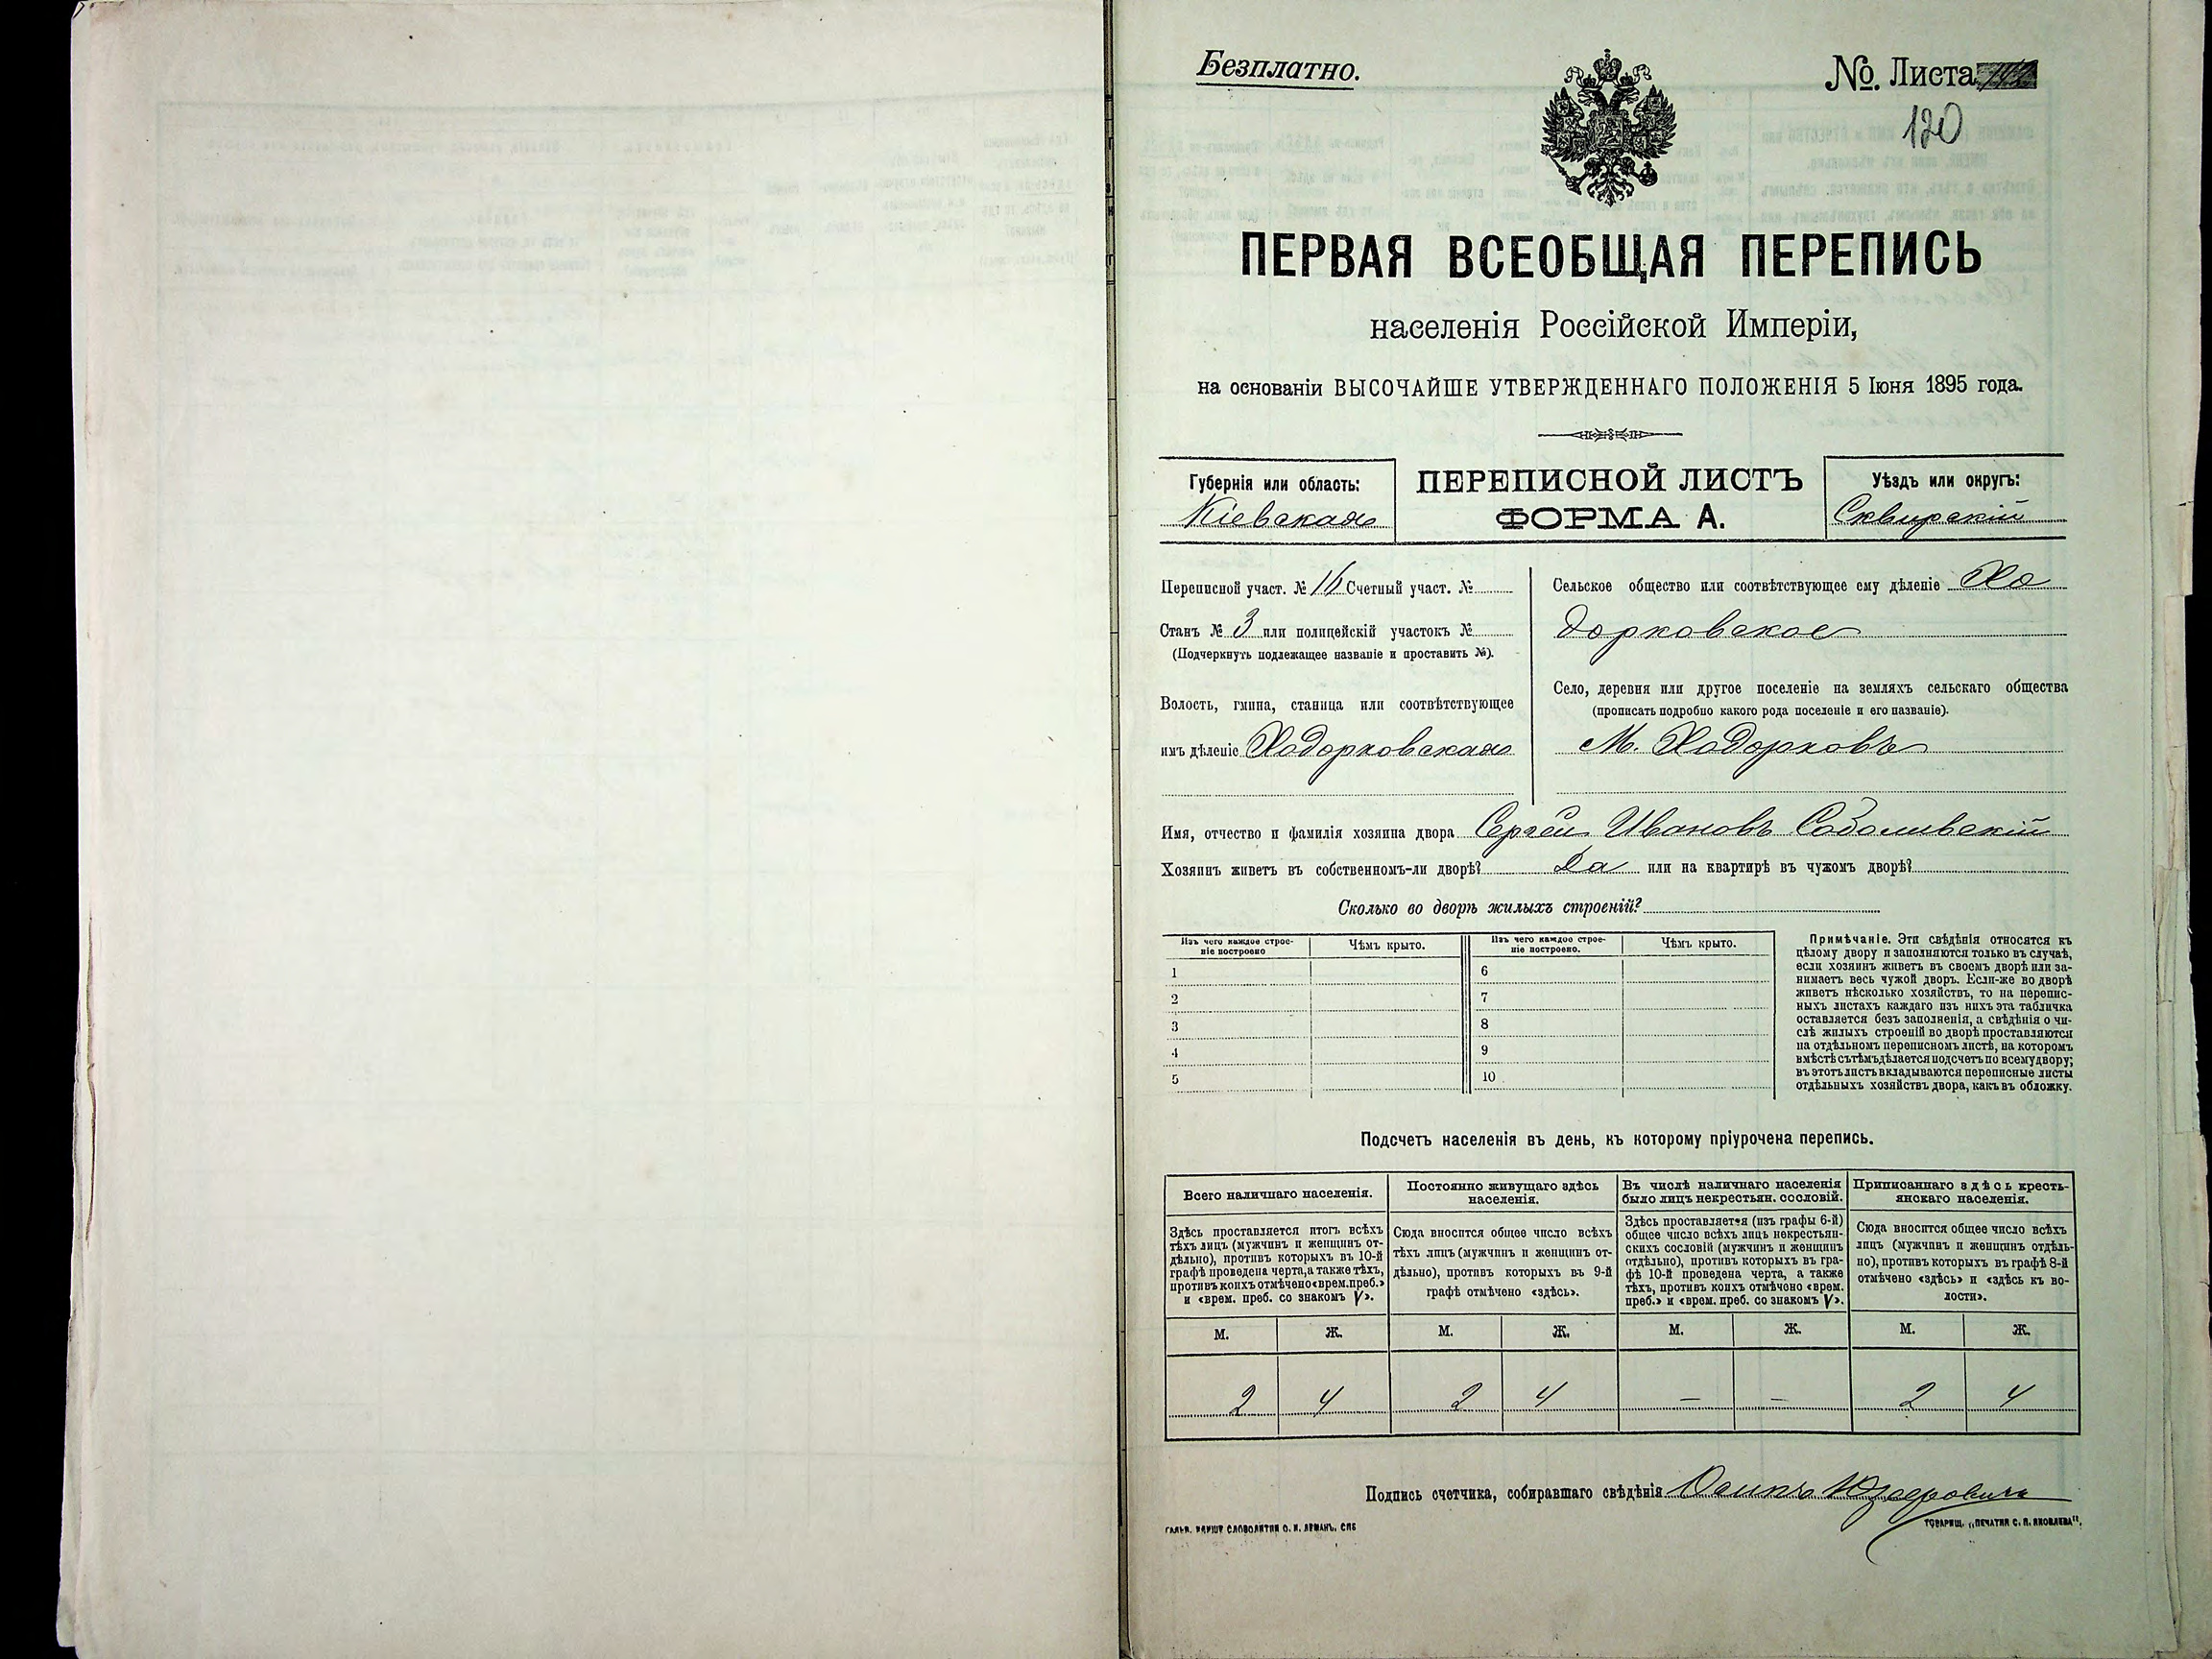 Безплатно.
№. Листа
120
ПЕРВАЯ ВСЕОБЩАЯ ПЕРЕПИСЬ
населенія Россійской Имперіи,
на основаніи ВЫСОЧАЙШЕ УТВЕРЖДЕННАГО ПОЛОЖЕНІЯ 5 Іюня 1895 года.
Губернія или область:
Кіевская
ПЕРЕПИСНОЙ ЛИСТЪ
ФОРМА А.
Уѣздъ или округъ:
Сквирскій
Переписной участ. № 16 Счетный участ. №
Станъ № 3 или полицейскій участокъ №
(Подчеркнуть подлежащее названіе и проставить №).
Волость, гмина, станица или соотвѣтствующее
имъ дѣленіе Ходорковская
Сельское общество или соотвѣтствующее ему дѣленіе Хо
дорковское
Село, деревня или другое поселеніе на земляхъ сельскаго общества
(прописать подробно какого рода поселеніе и его названіе).
М. Ходорковъ
Имя, отчество и фамилія хозяина двора Сергѣй Ивановъ Соболивскій
Хозяинъ живетъ въ собственномъ-ли дворѣ? Да или на квартирѣ въ чужомъ дворѣ?
Сколько во дворѣ жилыхъ строеній?
Изъ чего каждое строе-
ніе построено
Чѣмъ крыто.
Изъ чего каждое строе-
ніе построено.
Чѣмъ крыто.
1
2
3
4
5
6
7
8
9
10
Примѣчаніе. Эти свѣдѣнія относятся къ
цѣлому двору и заполняются только въ случаѣ,
если хозяинъ живетъ въ своемъ дворѣ или за-
нимаетъ весь чужой дворъ. Если-же во дворѣ
живетъ нѣсколько хозяйствъ, то на перепис-
ныхъ листахъ каждаго изъ нихъ эта табличка
оставляется безъ заполненія, а свѣдѣнія о чи-
слѣ жилыхъ строеній во дворѣ проставляются
на отдѣльномъ переписномъ листѣ, на которомъ
вмѣстѣ съ тѣмъ дѣлается подсчетъ по всему двору;
въ этотъ листъ вкладываются переписные листы
отдѣльныхъ хозяйствъ двора, какъ въ обложку.
Подсчетъ населенія въ день, къ которому пріурочена перепись.
Всего наличнаго населенія.
Здѣсь проставляется итогъ всѣхъ
тѣхъ лицъ (мужчинъ и женщинъ от-
дѣльно), противъ которыхъ въ 10-й
графѣ проведена черта, а также тѣхъ,
противъ коихъ отмѣчено «врем. преб.»
и «врем. преб. со знакомъ V».
Постоянно живущаго здѣсь
населенія.
Сюда вносится общее число всѣхъ
тѣхъ лицъ (мужчинъ и женщинъ от-
дѣльно), противъ которыхъ въ 9-й
графѣ отмѣчено «здѣсь».
Въ числѣ наличнаго населенія
было лицъ некрестьян. сословій.
Здѣсь проставляется (изъ графы 6-й)
общее число всѣхъ лицъ некрестьян-
скихъ сословій (мужчинъ и женщинъ
отдѣльно), противъ которыхъ въ гра-
фѣ 10-й проведена черта, а также
тѣхъ, противъ коихъ отмѣчено «врем.
преб.» и «врем. преб. со знакомъ V».
Приписаннаго здѣсь кресть-
янскаго населенія.
Сюда вносится общее число всѣхъ
лицъ (мужчинъ и женщинъ отдѣль-
но), противъ которыхъ въ графѣ 8-й
отмѣчено «здѣсь» и «здѣсь къ во-
лости».
М. Ж. М. Ж. М. Ж. М. Ж.
2 4 2 4 — — 2 4
Подпись счетчика, собиравшаго свѣдѣнія Осипъ
ТОВАРИЩ. „ПЕЧАТНЯ С. П. ЯКОВЛЕВА".